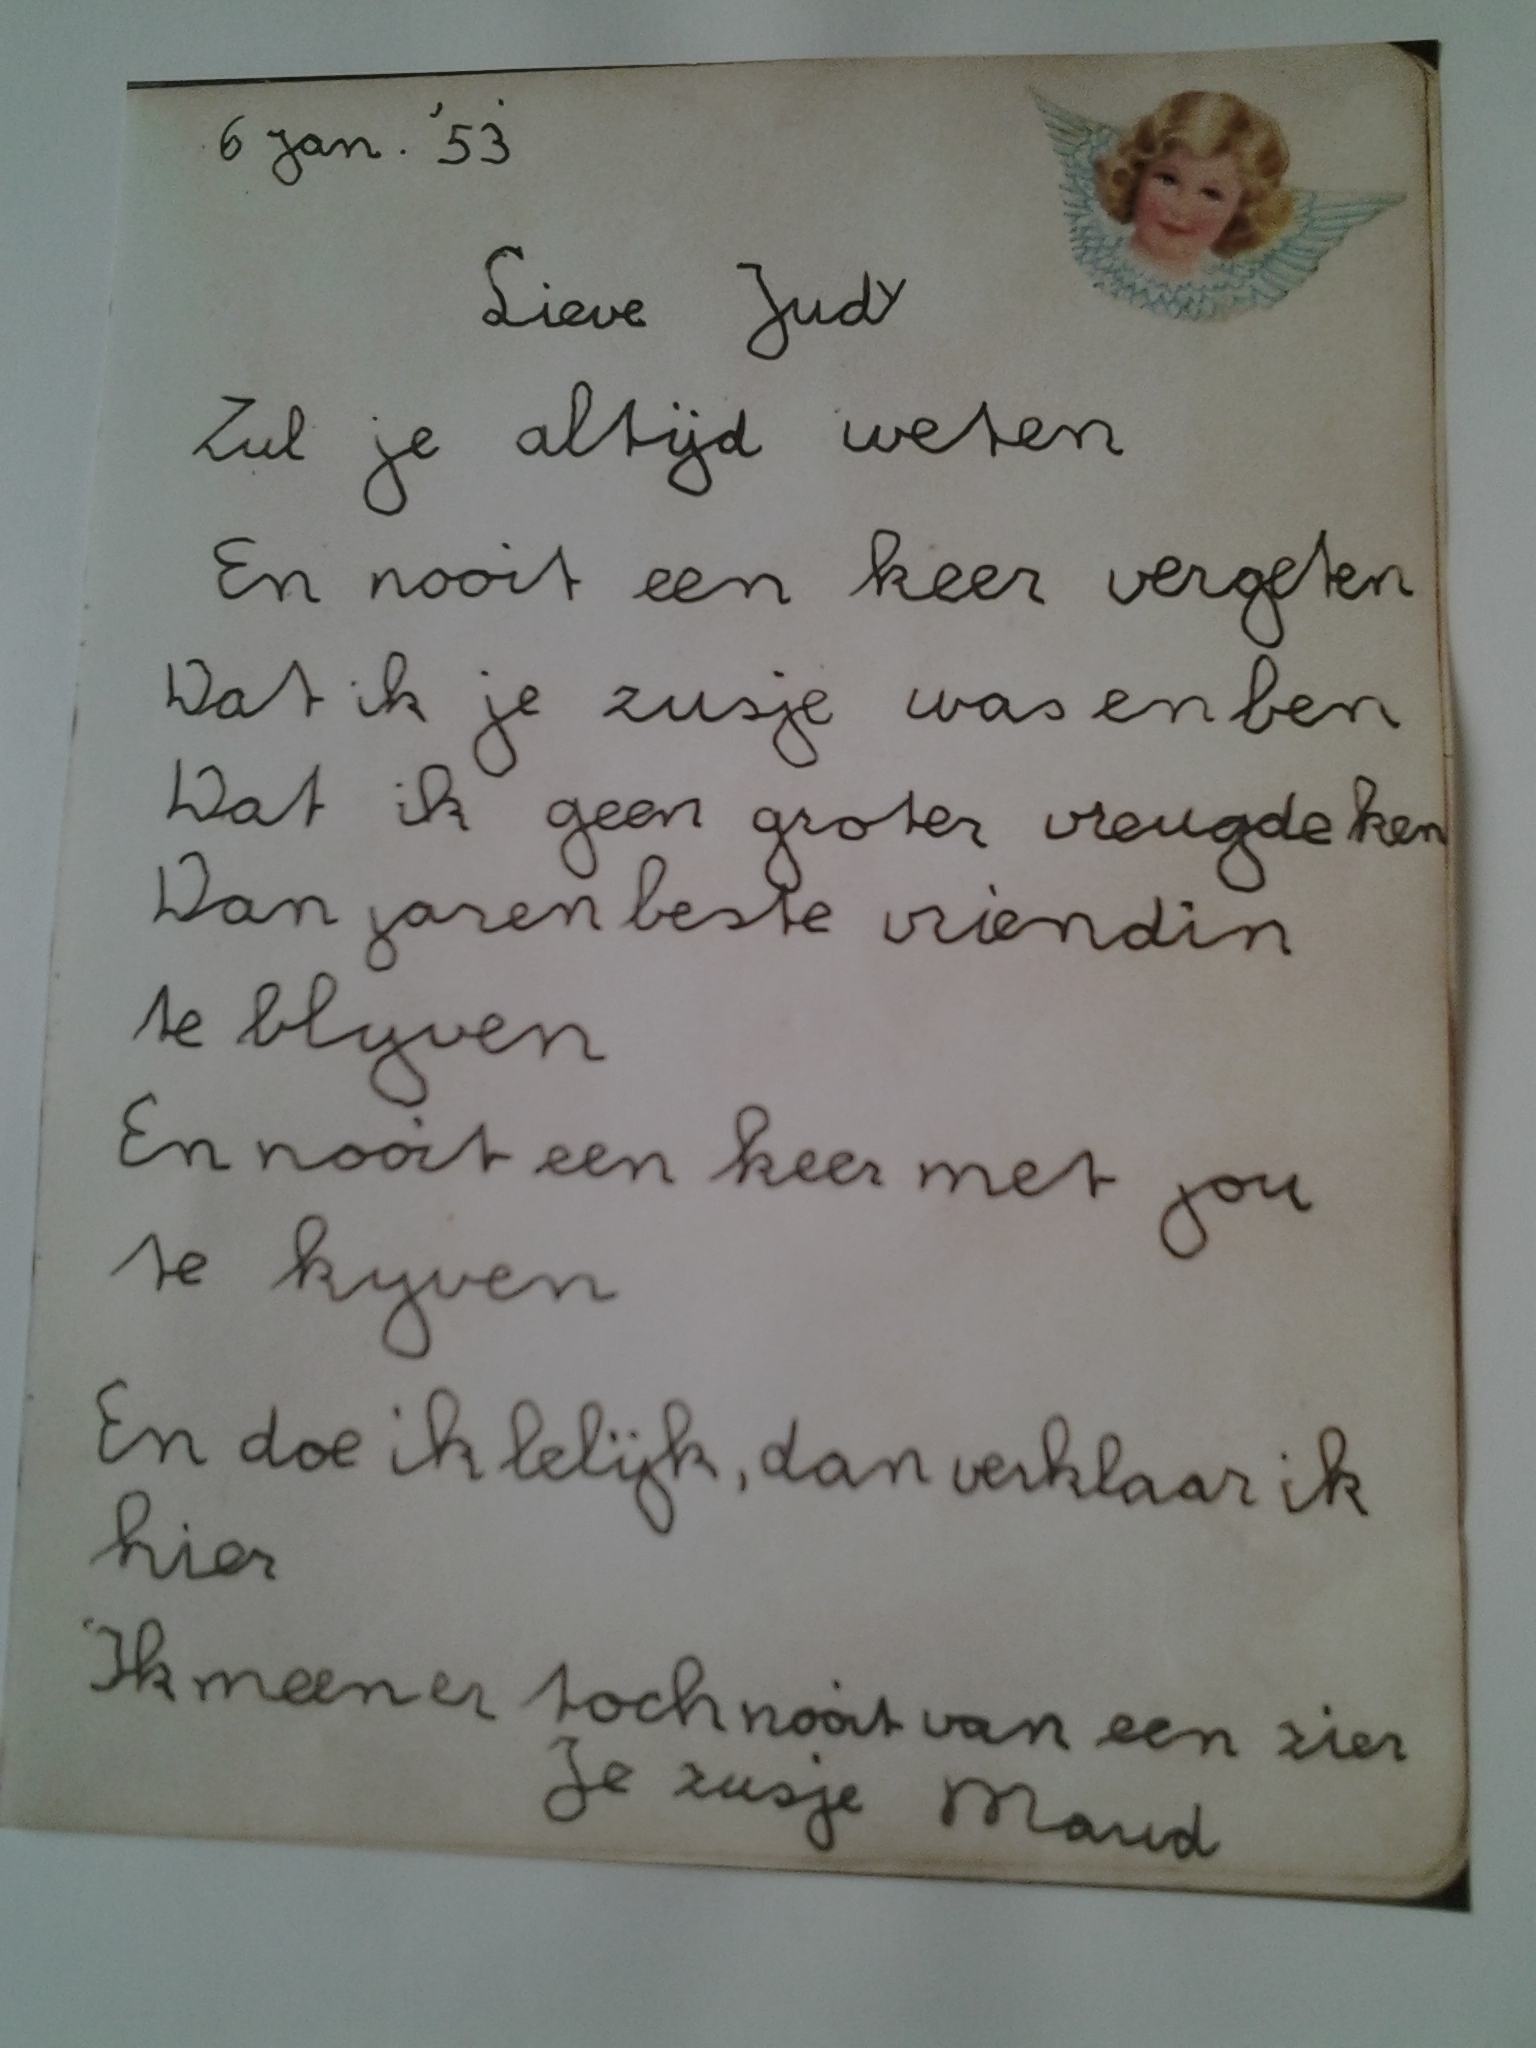 6 jan. '53
Lieve Judy
Zul je altijd weten
En nooit een keer vergeten
Dat ik je zusje was en ben
Dat ik geen groter vreugde ken
Dan jaren beste vriendin
te blyven
En nooit een keer met jou
te kyven
En doe ik lelijk, dan verklaar ik
hier
Ik meen er toch nooit van een zier
Je zusje Maud